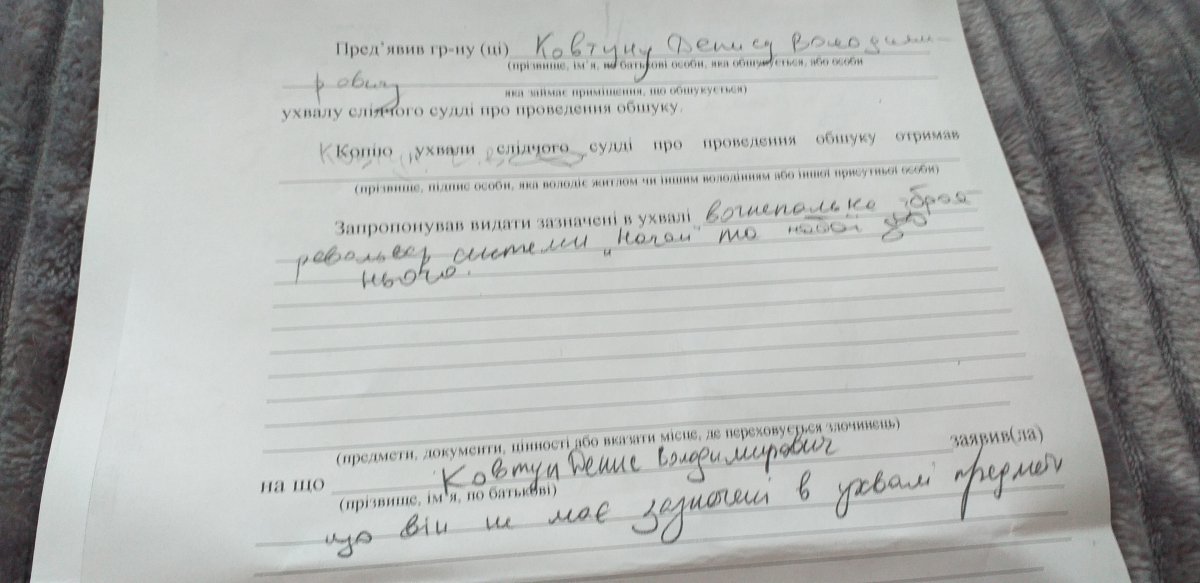 Пред’явив гр-ну (ці) Ковтуну Денису Володими-
(прізвище, ім’я, по батькові особи, яка обшукується, або особи
ровичу
яка займає приміщення, що обшукується)
ухвалу слідчого судді про проведення обшуку.
Копію ухвали слідчого судді про проведення обшуку отримав
(прізвище, підпис особи, яка володіє житлом чи іншим володінням або іншої присутньої особи)
Запропонував видати зазначені в ухвалі вогнепальна зброя
револьвер системи „Наган" та набої до
нього.
(предмети, документи, цінності або вказати місце, де переховується злочинець)
на що Ковтун Денис Володимирович заявив(ла)
(прізвище, ім’я, по батькові)
що він не має зазначені в ухвалі предмети